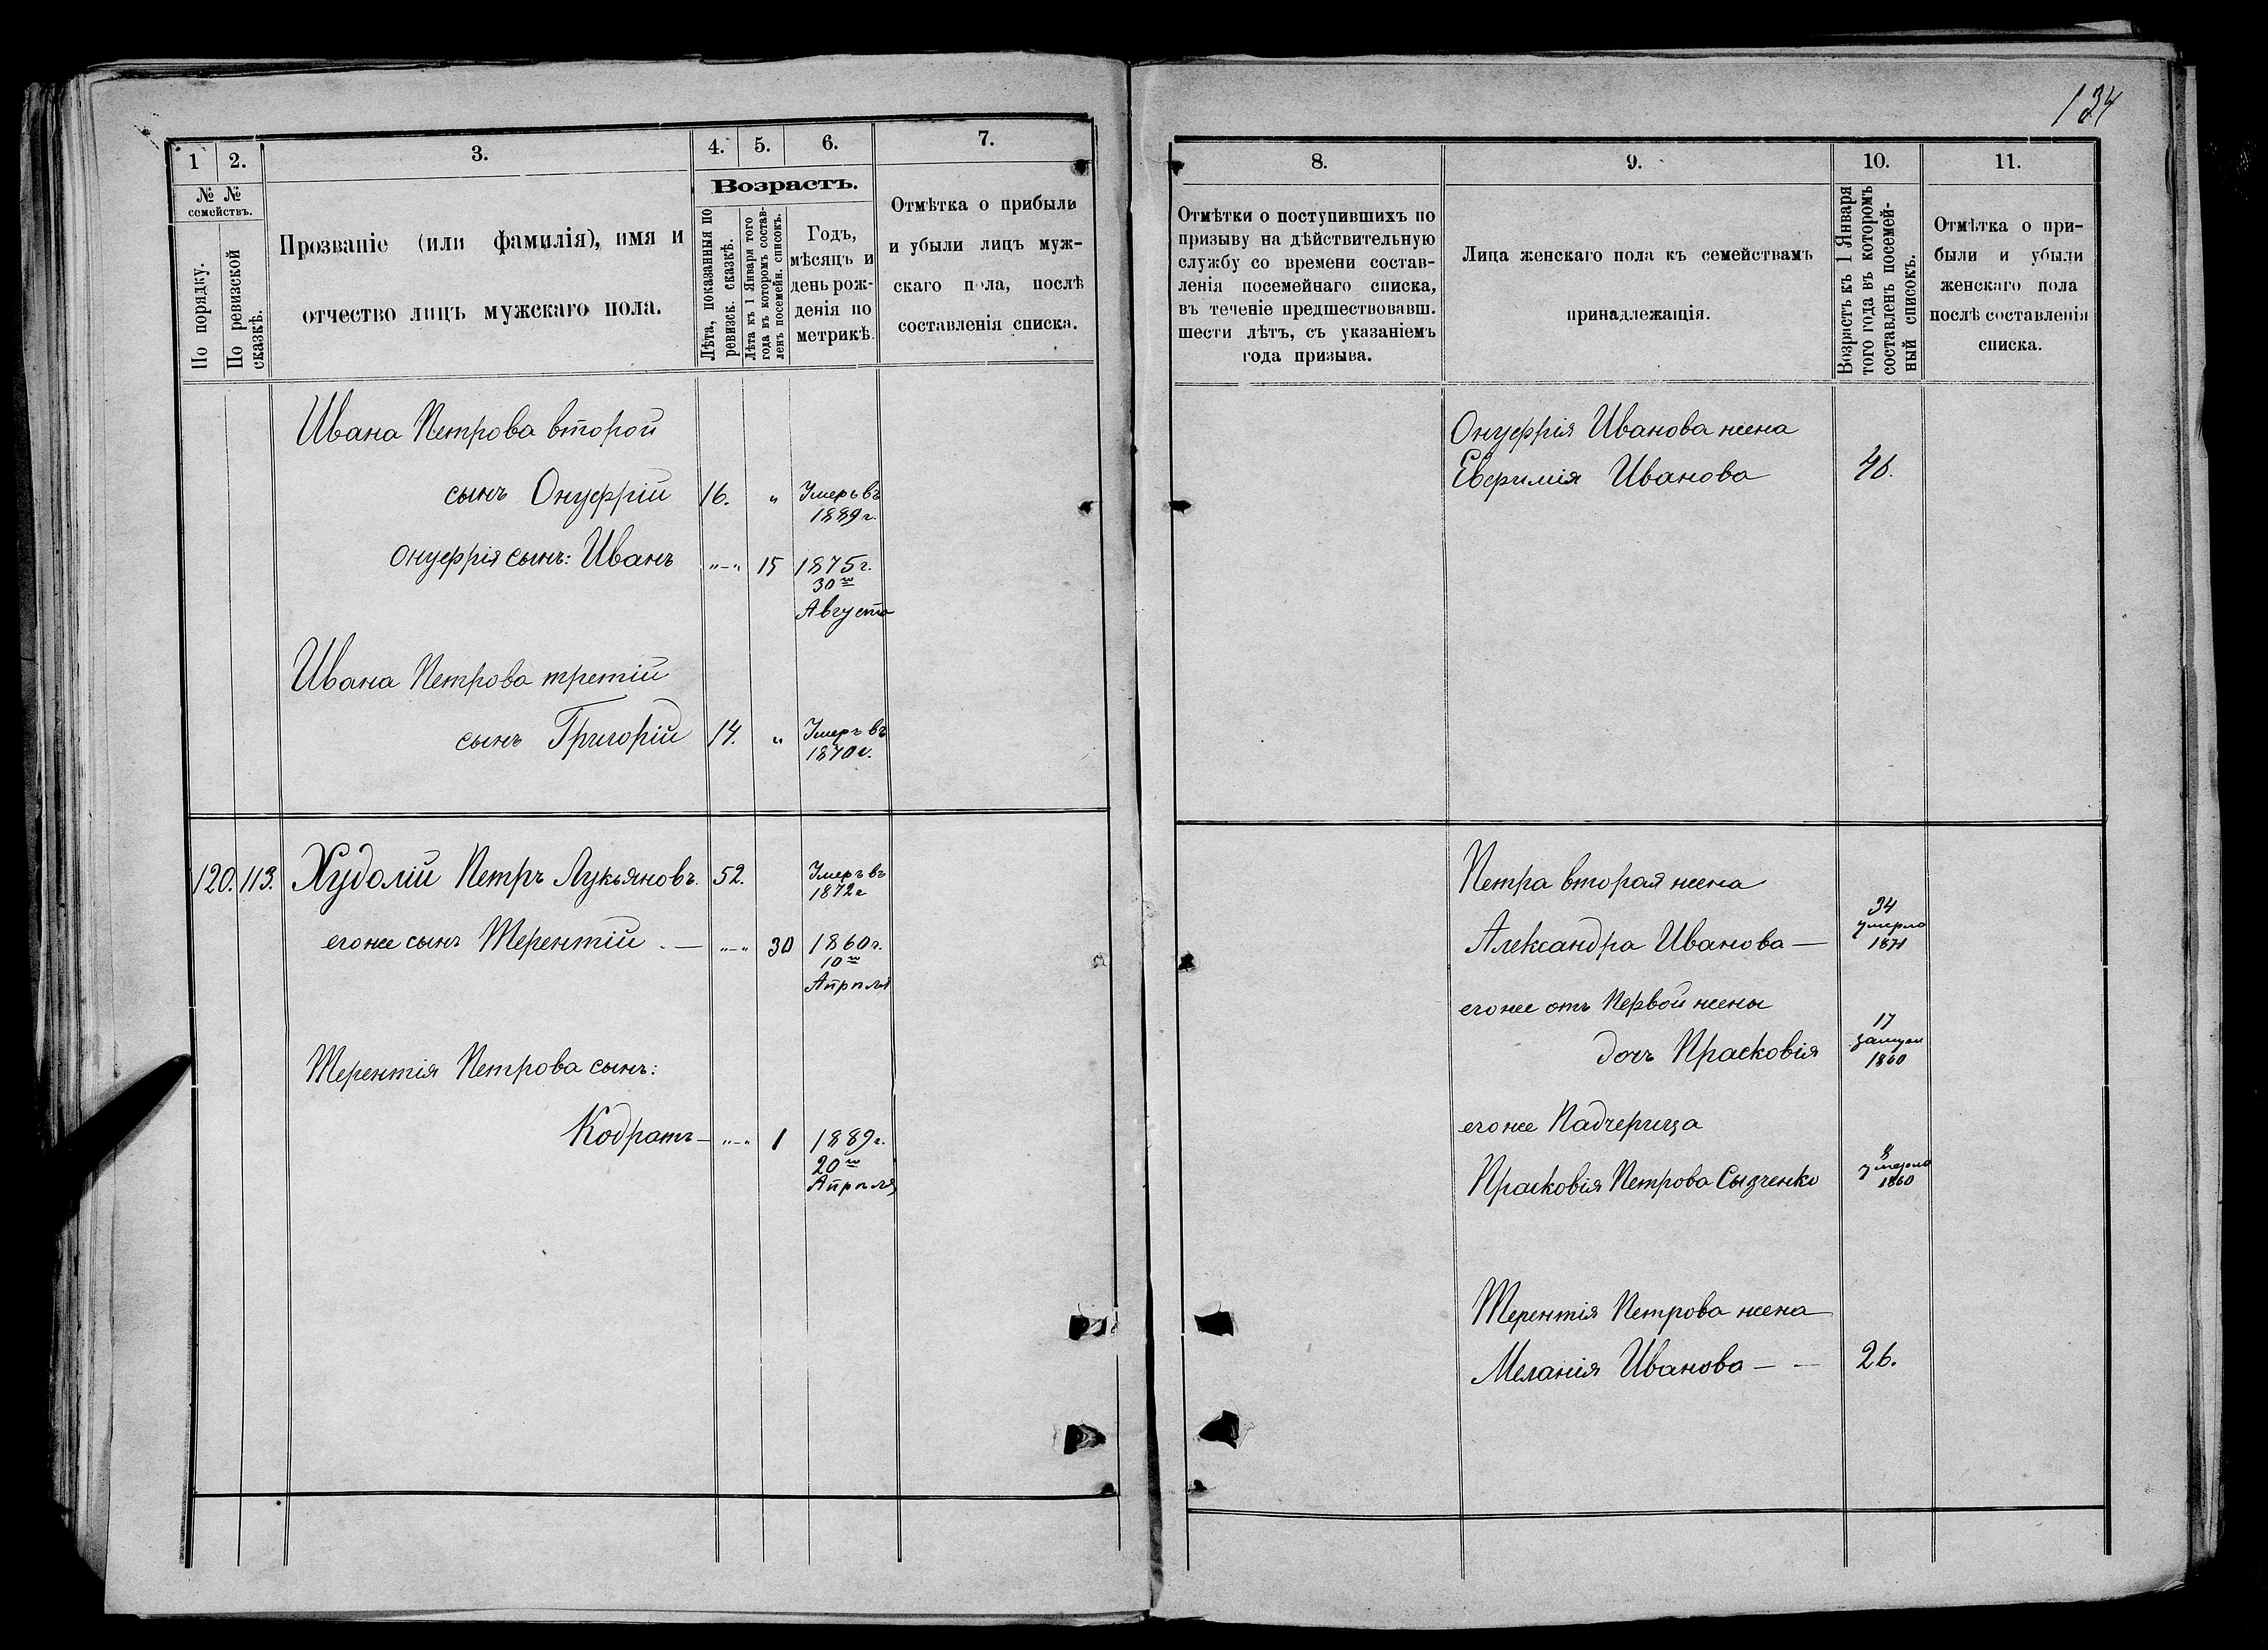 134
1
2.
3.
4.
5.
6.
7.
№ №
семействъ.
По порядку.
По ревизской
сказкѣ.
Прозваніе (или фамилія), имя и
отчество лицъ мужскаго пола.
Возрастъ.
Лѣта, показанныя по
ревизск. сказкѣ.
Лѣта къ 1 Января того
года въ которомъ состав-
ленъ посемейн. списокъ.
Годъ,
мѣсяцъ и
день рож-
денія по
метрикѣ.
Отмѣтка о прибыли
и убыли лицъ муж-
скаго пола, послѣ
составленія списка.
Ивана Петрова второй
сынъ Онуфрій 16. „ Умеръ въ
1889 г.
Онуфрія сынъ: Иванъ „–„ 15 1875 г.
30го
Августа
Ивана Петрова третій
сынъ Григорій 14. „ Умеръ въ
1870 г.
120. 113. Худолій Петръ Лукьяновъ. 52. Умеръ въ
1872 г
егоже сынъ Терентій . — „–„ 30 1860 г.
10го
Апрѣля
Терентія Петрова сынъ:
Кодратъ – „–„ 1 1889 г.
20го
Апрѣля
8.
9.
10.
11.
Отмѣтки о поступившихъ по
призыву на дѣйствительную
службу со времени состав-
ленія посемейнаго списка,
въ теченіе предшествовавш.
шести лѣтъ, съ указаніемъ
года призыва.
Лица женскаго пола къ семействамъ
принадлежащія.
Возрастъ къ 1 Января
того года въ которомъ
составленъ посемей-
ный списокъ.
Отмѣтка о при-
были и убыли
женскаго пола
послѣ составленія
списка.
Онуфрія Иванова жена
Евфимія Иванова
Петра вторая жена
34
Александра Иванова — умерла
1871
егоже отъ Первой жены
17
дочъ Прасковія замуж
1860
егоже Падчерица
8
Прасковія Петрова умерла
1860
Терентія Петрова жена
Меланія Иванова — — 26.